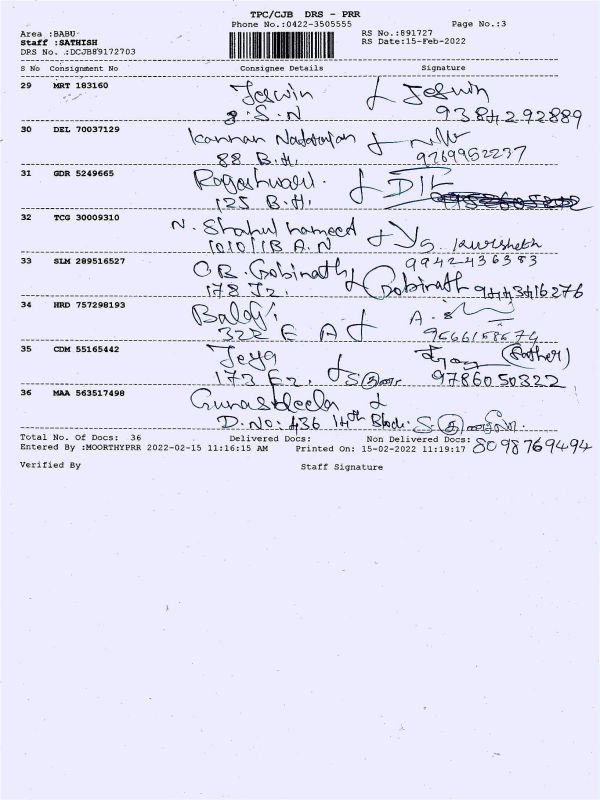 TPC/CJB DRS - PRR
Phone No.:0422-3505555 Page No.:3
Area :BABU
Staff :SATHISH
DRS No. :DCJB89172703
RS No.:891727
RS Date:15-Feb-2022
S No Consignment No Consignee Details Signature
29 MRT 183160 Jeswin Jeswin
8.S.N 9384292889
30 DEL 70037129 Kannan Natarajan
88 B.H. 9769952237
31 GDR 5249665
125 B.H.
32 TCG 30009310 N. Shahul hameed
1010/1B A.N 9942436383
33 SLM 289516527 O.B. Gobinath Gobinath
178 Iz. 9443416276
34 HRD 757298193 Balaji A.S
322 E A
35 CDM 55165442 Jeya (Father)
173 Ez. 9786050322
36 MAA 563517498
D.No: 436 14th Block.
Total No. Of Docs: 36 Delivered Docs: Non Delivered Docs: 8098769494
Entered By :MOORTHYPRR 2022-02-15 11:16:15 AM Printed On: 15-02-2022 11:19:17
Verified By Staff Signature